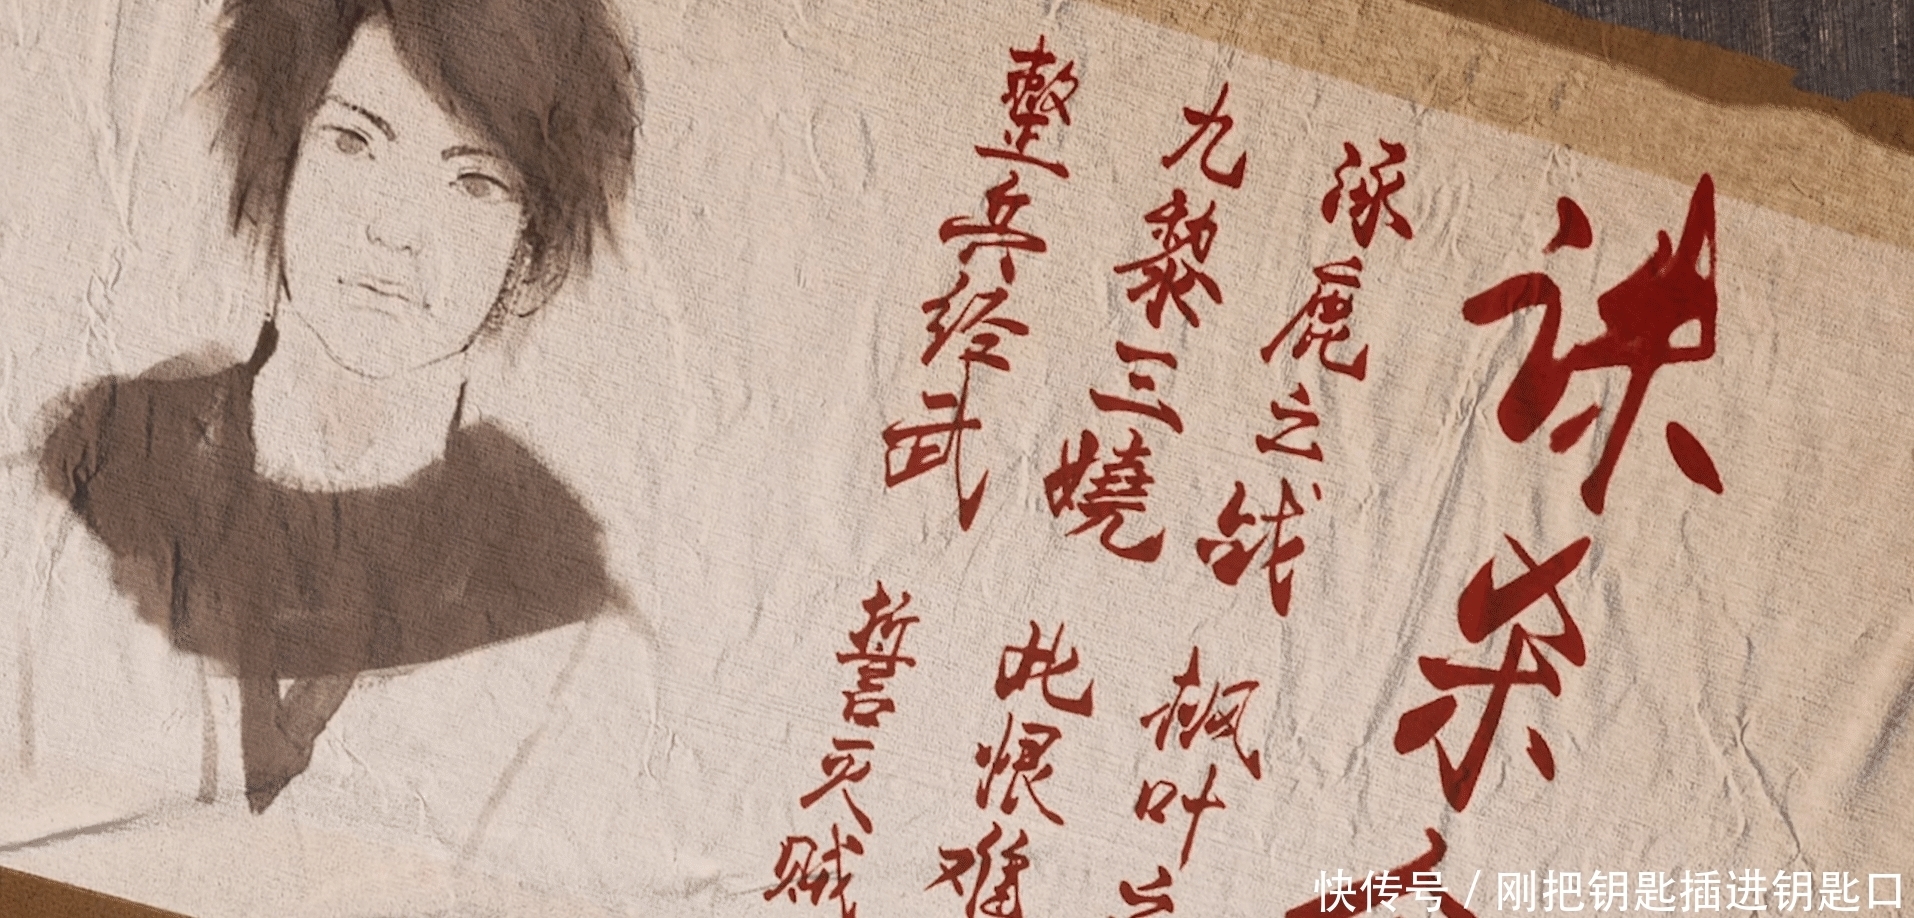 诛杀
涿鹿之战
枫叶之
九黎三嬈
此恨难
整兵经武
誓灭贼
快传号 / 刚把钥匙插进钥匙口